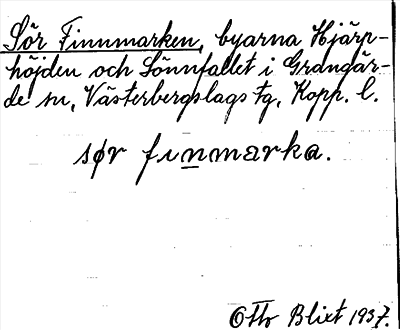 Sör Finnmarken, byarna Hjärp-
höjden och Sönnfallet i Grangär-
de sn, Västerbergslags tg, Kopp. l.
sør finmarka.
Otto Blixt 1937.